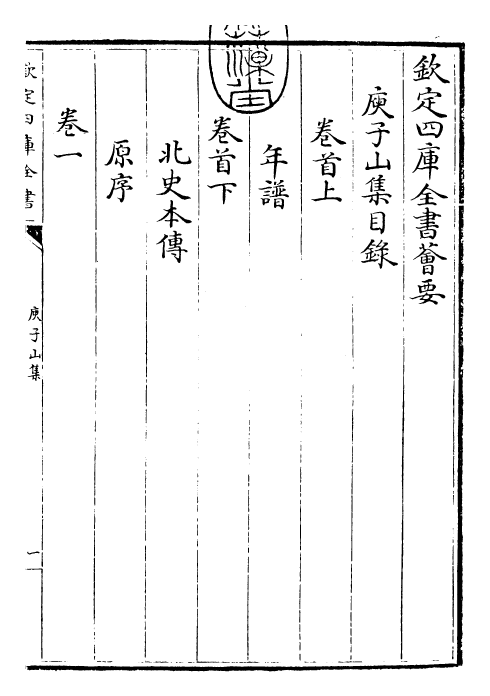 欽定四庫全書薈要
庾子山集目錄
卷首上
年譜
卷首下
北史本傳
原序
卷一
欽定四庫全書
庾子山集
一